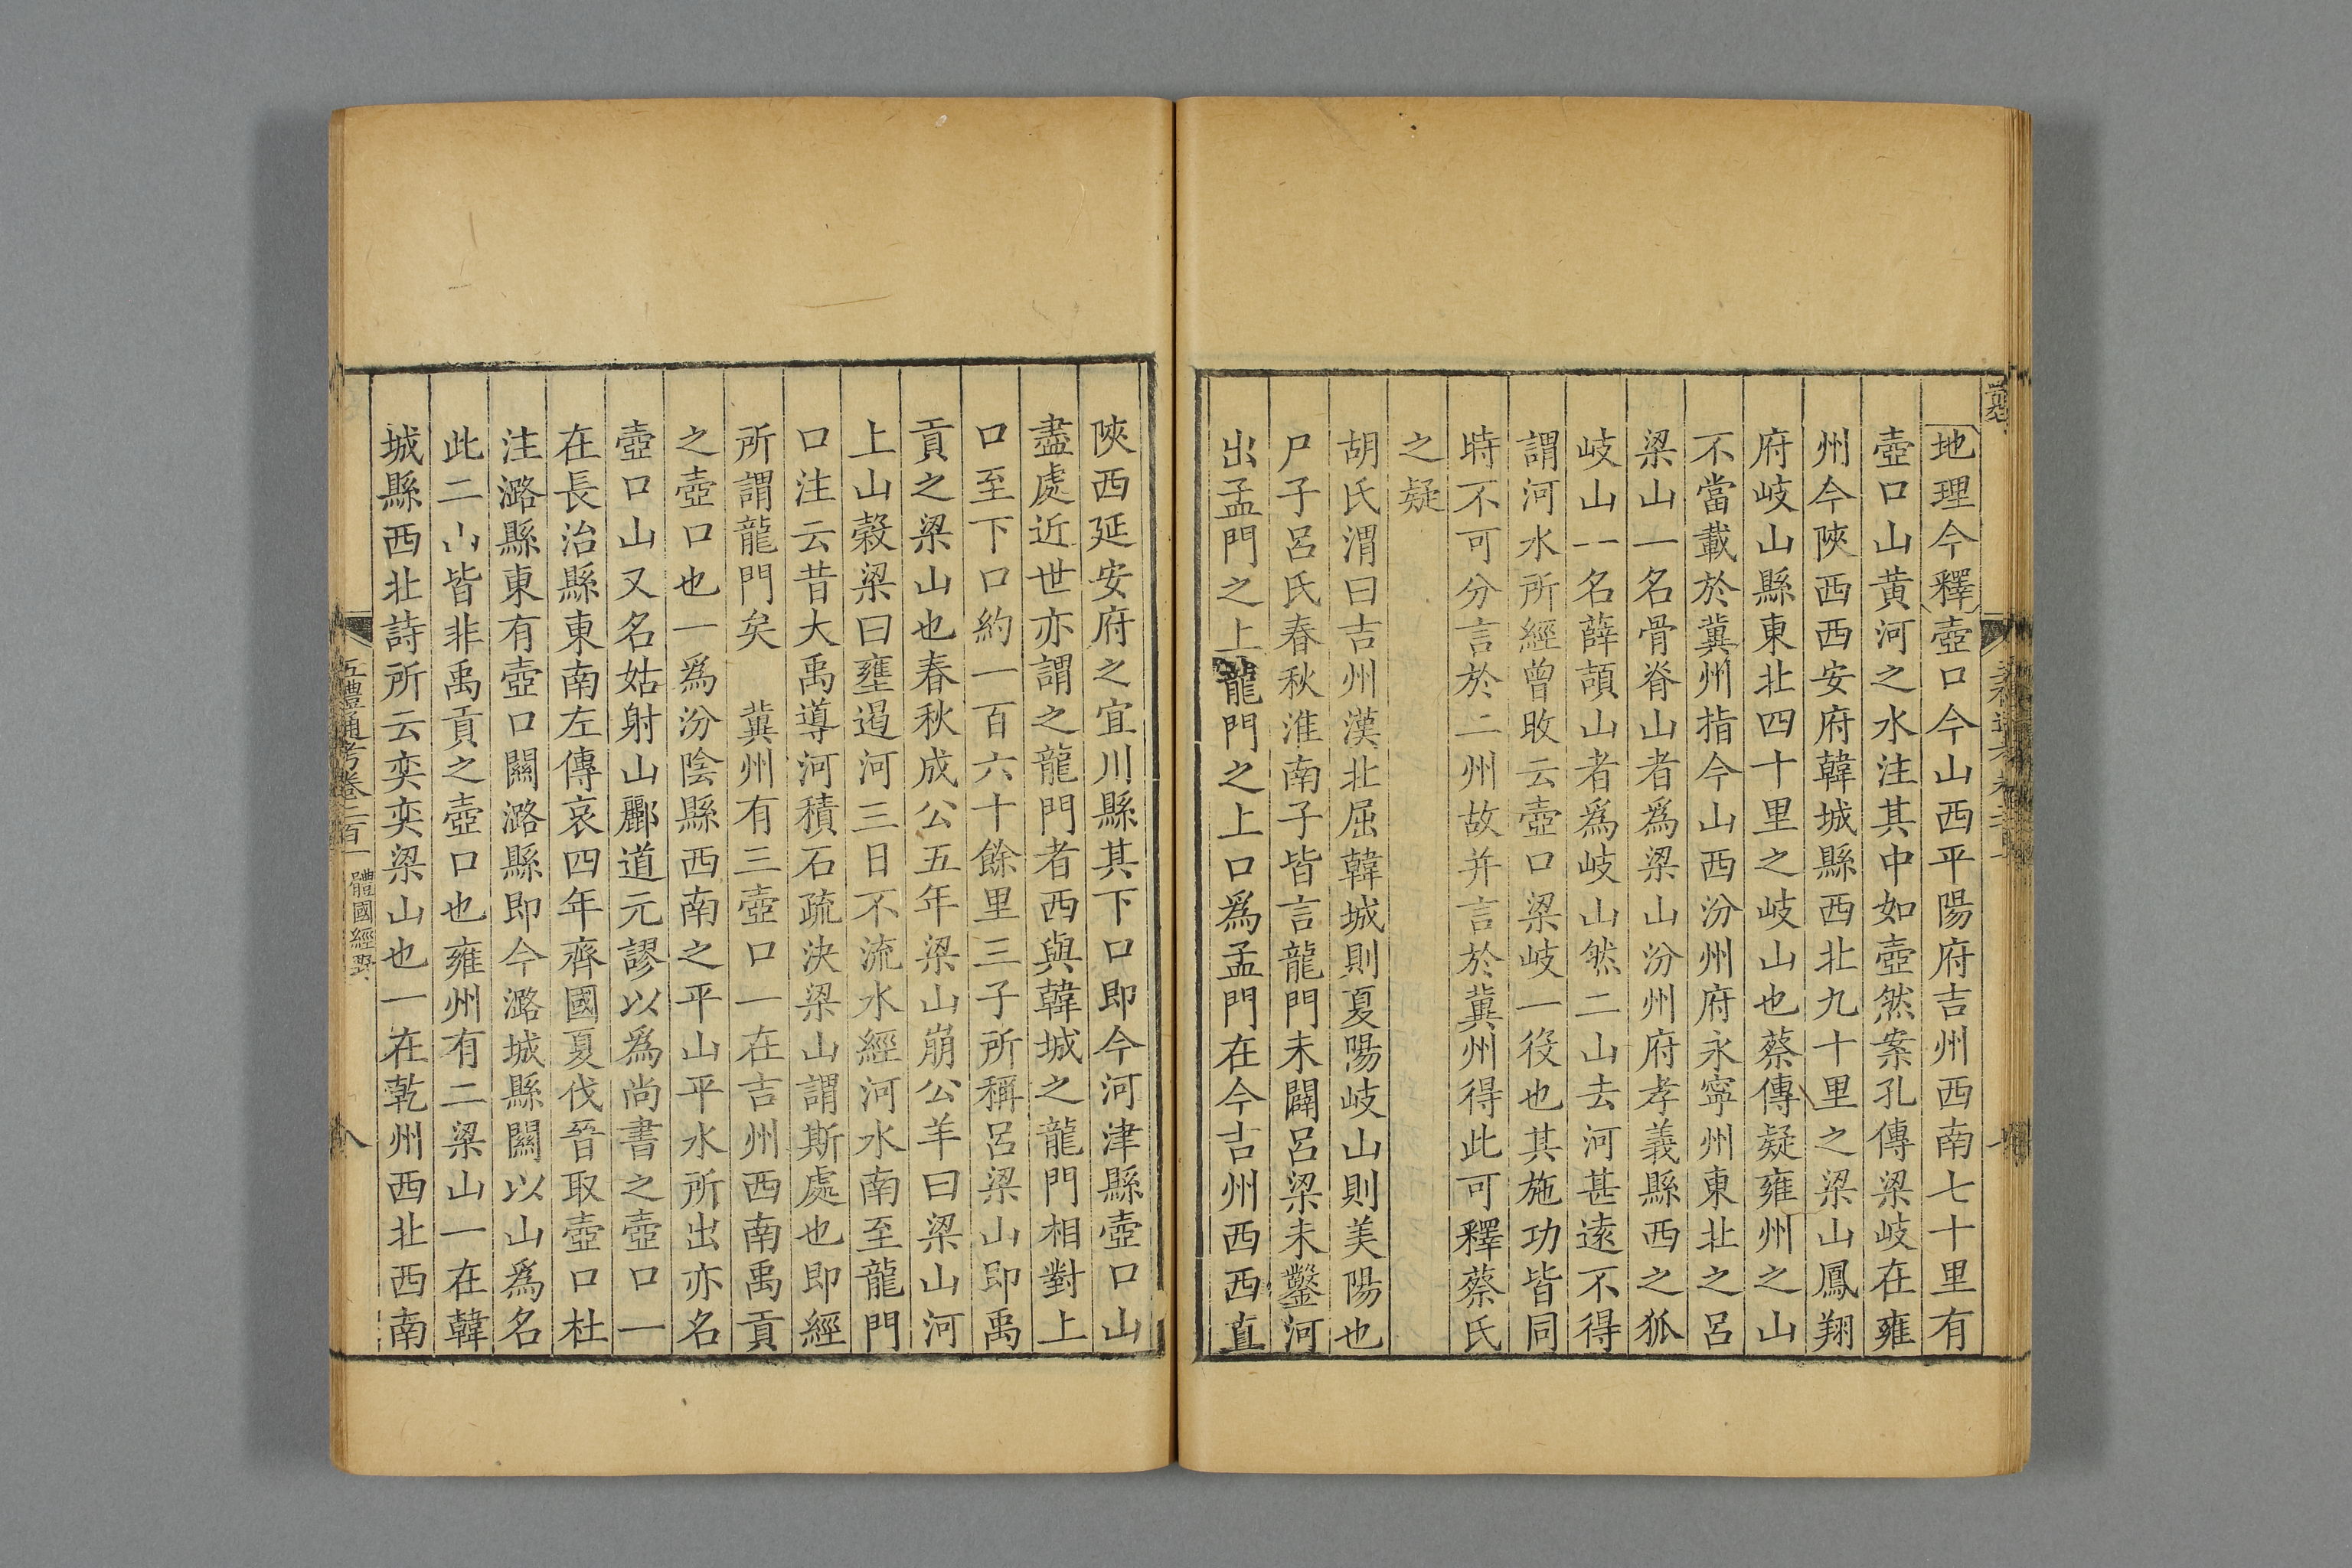 地理今釋壺口今山西平陽府吉州西南七十里有
壺口山黄河之水注其中如壺然案孔傳梁岐在雍
州今陝西西安府韓城縣西北九十里之梁山鳳翔
府岐山縣東北四十里之岐山也蔡傳疑雍州之山
不當載於冀州指今山西汾州府永寧州東北之呂
梁山一名骨脊山者爲梁山汾州府孝義縣西之狐
岐山一名薛頡山者爲岐山然二山去河甚遠不得
謂河水所經曾旼云壺口梁岐一役也其施功皆同
時不可分言於二州故并言於冀州得此可釋蔡氏
之疑
胡氏渭曰吉州漢北屈韓城則夏陽岐山則美陽也
尸子呂氏春秋淮南子皆言龍門未闢呂梁未鑿河
出孟門之上龍門之上口爲孟門在今吉州西西直
陝西延安府之宜川縣其下口即今河津縣壺口山
盡處近世亦謂之龍門者西與韓城之龍門相對上
口至下口約一百六十餘里三子所稱呂梁山即禹
貢之梁山也春秋成公五年梁山崩公羊曰梁山河
上山榖梁曰壅遏河三日不流水經河水南至龍門
口注云昔大禹導河積石疏決梁山謂斯處也即經
所謂龍門矣　冀州有三壺口一在吉州西南禹貢
之壺口也一爲汾陰縣西南之平山平水所出亦名
壺口山又名姑射山酈道元謬以爲尚書之壺口一
在長治縣東南左傳哀四年齊國夏伐晉取壺口杜
注潞縣東有壺口關潞縣即今潞城縣關以山爲名
此二山皆非禹貢之壺口也雍州有二梁山一在韓
城縣西北詩所云奕奕梁山也一在乾州西北西南
五禮通考卷二百一 體國經野 八